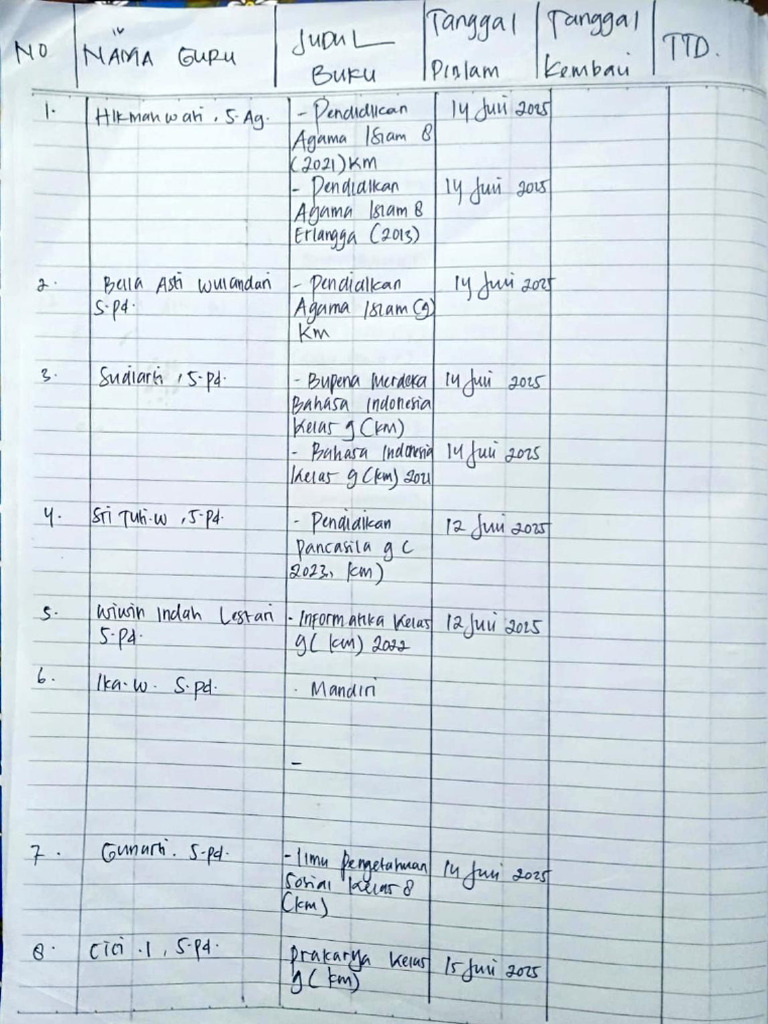 NO NAMA GURU JUDUL BUKU Tanggal Pinjam Tanggal Kembali TTD.
1. Hikmahwati, S.Ag. - Pendidikan 14 Juli 2025
Agama Islam 8
(2021) KM
- Pendidikan 14 Juli 2025
Agama Islam 8
Erlangga (2013)
2. Bella Asti Wulandari - Pendidikan 14 Juli 2025
S.pd. Agama Islam (9)
KM
3. Sudiarti, S.pd. - Bupena Merdeka 14 Juli 2025
Bahasa Indonesia
Kelas 9 (KM)
- Bahasa Indonesia 14 Juli 2025
Kelas 9 (KM) 2021
4. Sri Tuti.W, S.pd. - Pendidikan 12 Juli 2025
Pancasila 9 (
2023, KM)
5. Wiwin Indah Lestari - Informatika Kelas 12 Juli 2025
S.pd. 9 (KM) 2022
6. Ika.W. S.pd. - Mandiri
-
7. Gunarti. S.pd. - Ilmu Pengetahuan 14 Juli 2025
Sosial Kelas 8
(KM)
8. Cici.I, S.pd. Prakarya Kelas 15 Juli 2025
9 (KM)